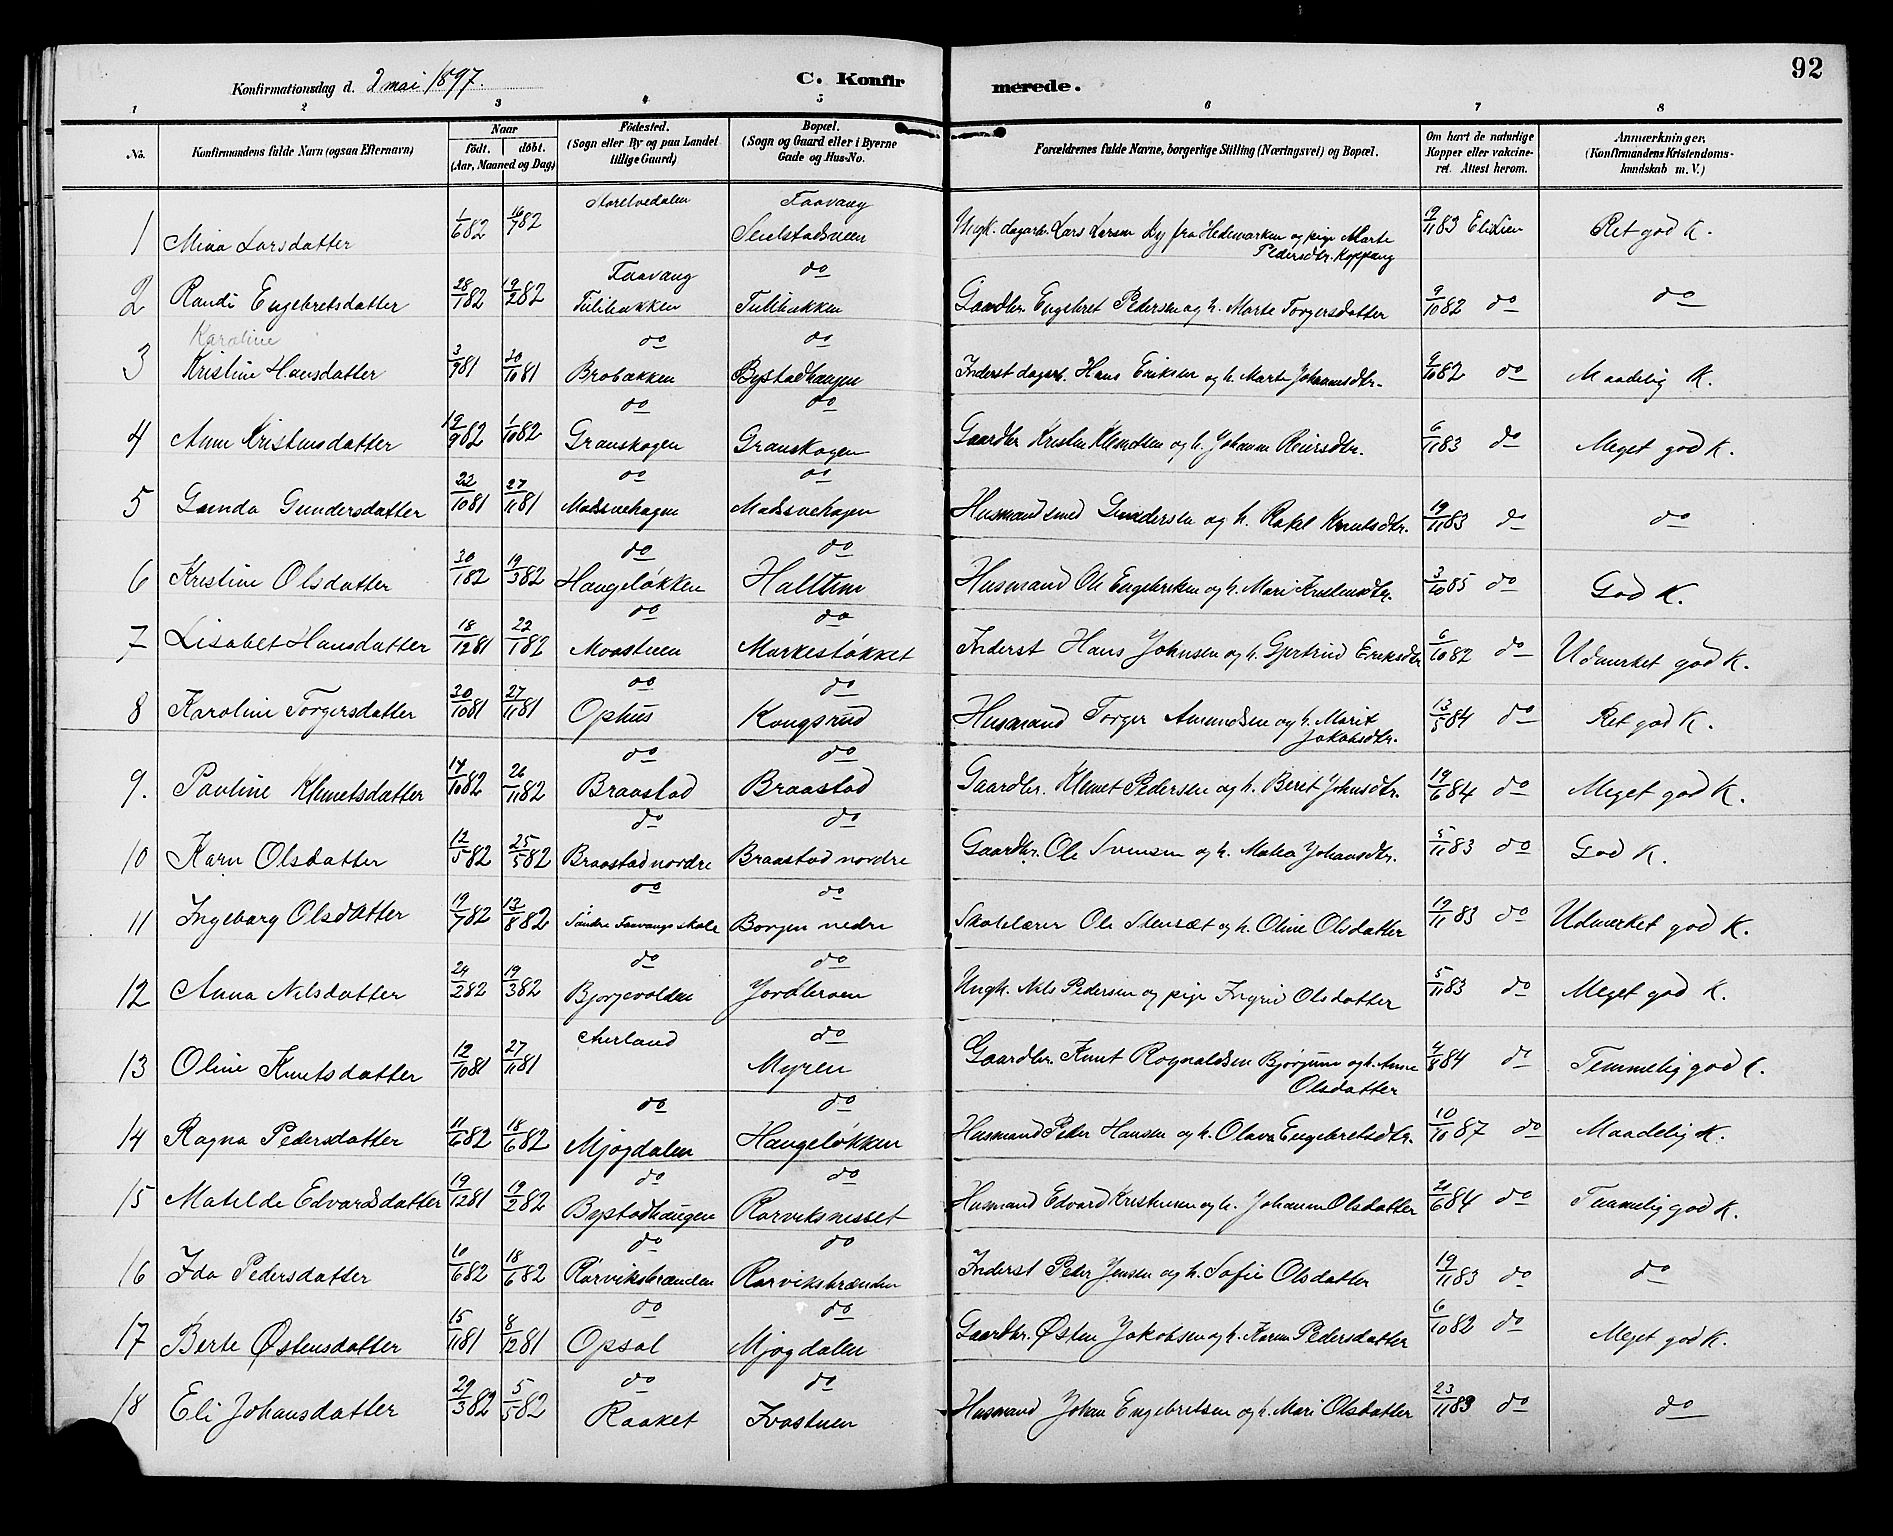 92
Konfirmationsdag d. 2 mai 1897. C. Konfirmerede.
1 2 3 4 5 6 7 8
No. Konfirmandens fulde Navn (ogsaa Efternavn) Naar født. døbt. (Aar, Maaned og Dag) Fødested. (Sogn eller By og paa Landet tillige Gaard) Bopæl. (Sogn og Gaard eller i Byerne Gade og Hus-No. Forældrenes fulde Navne, borgerlige Stilling (Næringsvei) og Bopæl. Om havt de naturlige Kopper eller vakcineret. Attest herom. Anmærkninger, (Konfirmandens Kristendomskundskab m. V.)
1 Mina Larsdatter 1/6 82 16/7 82 Storelvedalen Faavang Ungk. dagarb. Lars Larsen Ly fra Hedemarken og pige Marte Pedersdtr. Koppang 9/11 83 Eli Lien Ret god K.
2 Randi Engebretsdatter 28/1 82 19/2 82 Faavang Tulibakken do Tulibakken Gaardbr. Engebret Pedersen og h. Marte Torgersdatter 9/10 82 do do
Karoline
3 Kristine Hansdatter 3/9 81 30/10 81 do Brobakken do Bystadhaugen Inderst dagarb. Hans Eriksen og h. Marte Johannesdtr. 9/10 82 do Maadelig K.
4 Anne Kristensdatter 19/9 82 1/10 82 do Granskogen do Granskogen Gaardbr. Kristen Klemetsen og h. Johanne Reiersdtr. 6/11 83 do Meget god K.
5 Gunda Gundersdatter 22/10 81 27/11 81 do Madsvehagen do Madsvehagen Husmand smed Gundersen og h. Rakel Knutsdtr. 19/11 83 do do
6 Kristine Olsdatter 30/1 82 19/3 82 do Haugeløkken do Husmand Ole Engebretsen og h. Mari Kristensdtr. 3/10 85 do God K.
7 Lisabet Hansdatter 18/12 81 22/1 82 do Moastuen do Markestøkket Inderst Hans Johnsen og h. Gjertrud Eriksdtr. 6/10 82 do Udmerket god K.
8 Karoline Torgersdatter 30/10 81 27/11 81 do Ophus do Kongsrud Husmand Torger Amundsen og h. Marit Jakobsdtr. 13/5 84 do Ret god K.
9. Pauline Klemetsdatter 14/10 82 26/11 82 do Braastad do Braastad Gaardbr. Klemet Pedersen og h. Berit Johnsdtr. 19/6 84 do Meget god K.
10 Karn Olsdatter 12/5 82 25/5 82 do Braastad nordre do Braastad nordre Gaardbr. Ole Svensen og h. Matea Johansdtr. 5/11 83 do God K.
11 Ingeborg Olsdatter 19/7 82 13/8 82 do Søndre Faavangs skole do Borgen nedre Skolelærer Ole Stensæt og h. Oline Olsdatter 19/11 83 do Udmerket god K.
12 Anna Nilsdatter 24/2 82 19/3 82 do Bjørgevolden do Jordbroen Ungk. Nils Pedersen og pige Ingrid Olsdatter 5/11 83 do Meget god K.
13 Oline Knutsdatter 12/10 81 27/11 81 Aurland do Myren Gaardbr. Knut Rognaldsen Bjørgum og h. Anne Olsdatter 4/8 84 do Temmelig god K.
14 Ragna Pedersdatter 11/6 82 18/6 82 do Mjøgdalen do Haugeløkken Husmand Peder Hansen og h. Olava Engebretsdtr. 10/10 87 do Maadelig K.
15 Matilde Edvardsdatter 19/12 81 19/2 82 do Bystadhaugen do Rorviksnesset Husmand Edvard Kristensen og h. Johanne Olsdatter 21/6 84 do Temmelig god K.
16 Ida Pedersdatter 10/6 82 18/6 82 do Rorviksbrænden do Rorviksbrænden Inderst Peder Jensen og h. Sofie Olsdatter 19/11 83 do do
17 Berte Østensdatter 15/11 81 8/12 81 do Opsal do Mjøgdalen Gaardbr. Østen Jakobsen og h. Karen Pedersdatter 6/10 82 do Meget god K.
18 Eli Johansdatter 29/3 82 5/5 82 do Raaket do Ivastuen Husmand Johan Engebretsen og h. Mari Olsdatter 23/11 83 do do